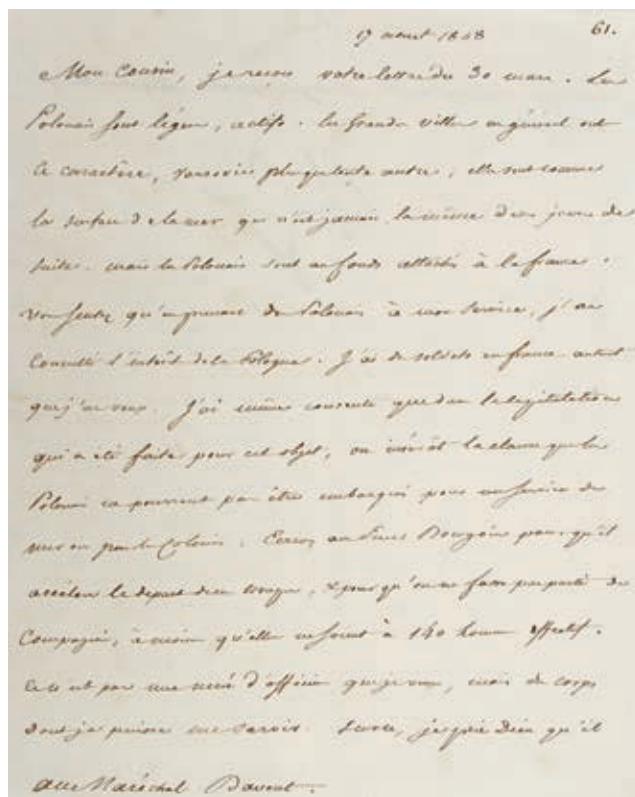 17 avril 1808 61.
Mon Cousin, je reçois votre lettre du 30 mars. Les
Polonais sont légers, actifs. les grandes villes en général ont
ce caractère, Varsovie plus que toute autre; elles sont comme
la surface de la mer qui n'est jamais la même deux jours de
suite. mais les Polonais sont au fonds attachés à la france.
Vous sentez qu'en prenant des Polonais à mon service, j'ai
consulté l'intérêt de la Pologne. J'ai de soldats en france autant
que j'en veux. J'ai même consenti que dans la capitulation
qui a été faite pour cet objet, on insérât la clause que les
Polonais ne pourront pas être embarqués pour un service de
mer ou pour les Colonies. Ecrivez au Sieur Bourgoing pour qu'il
accélère le départ de ces troupes, & pour qu'on ne fasse pas partir de
Compagnies, à moins qu'elles ne soient à 140 hommes effectifs.
Ce n'est pas une nuée d'officiers que je veux, mais des corps
dont je puisse me servir. Sur ce, je prie Dieu qu'il
au Maréchal Davout.